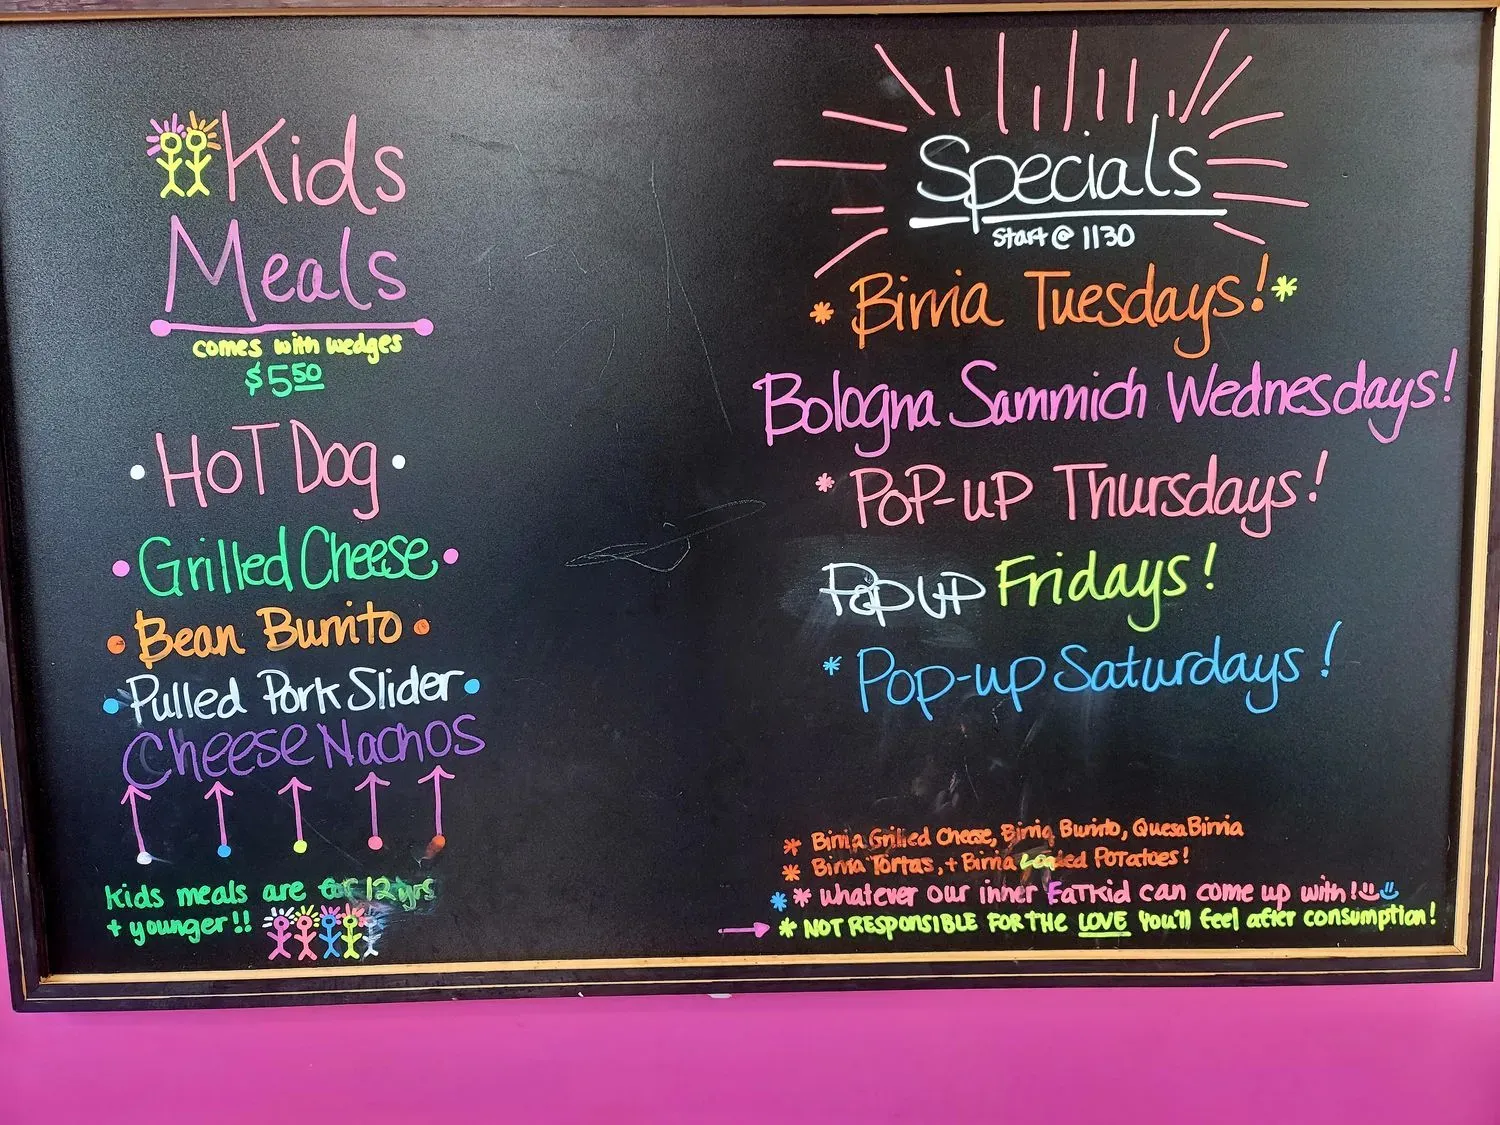 Kids
Meals
comes with wedges
$5.50
Hot Dog
Grilled Cheese
Bean Burrito
Pulled Pork Slider
Cheese Nachos
kids meals are for 12 yrs
+ younger!!
Specials
Start @ 1130
* Birria Tuesdays! *
Bologna Sammich Wednesdays!
* Pop-up Thursdays!
Pop up Fridays!
* Pop-up Saturdays!
* Birria Grilled Cheese, Birria Burrito, QuesaBirria
* Birria Tortas, + Birria Loaded Potatoes!
* * whatever our inner EatKid can come up with!
* NOT RESPONSIBLE FOR THE LOVE You'll feel after consumption!